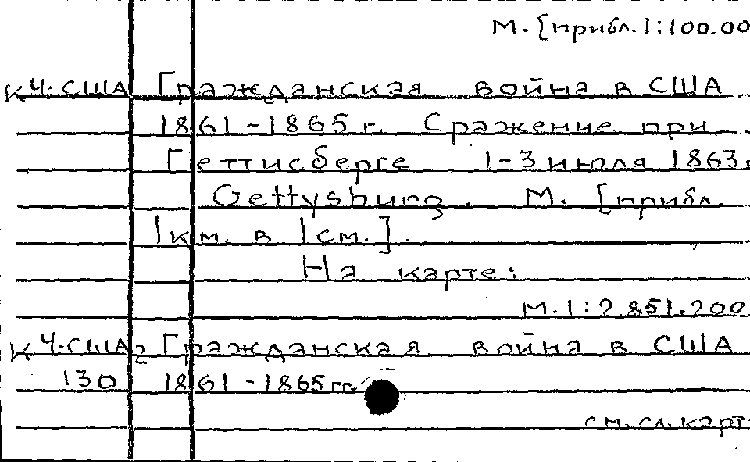 М. [прибл. 1:100.00
К Ч. США Гражданская война в США
1861-1865 г. Сражение при
Геттисберге 1-3 июля 1863 г
Gettysburg. М. [прибл.
1 км. в 1 см.].
На карте:
М. 1:2.851.200
К Ч. США2 Гражданская война в США
130 1861-1865 гг.
см. сл. карт